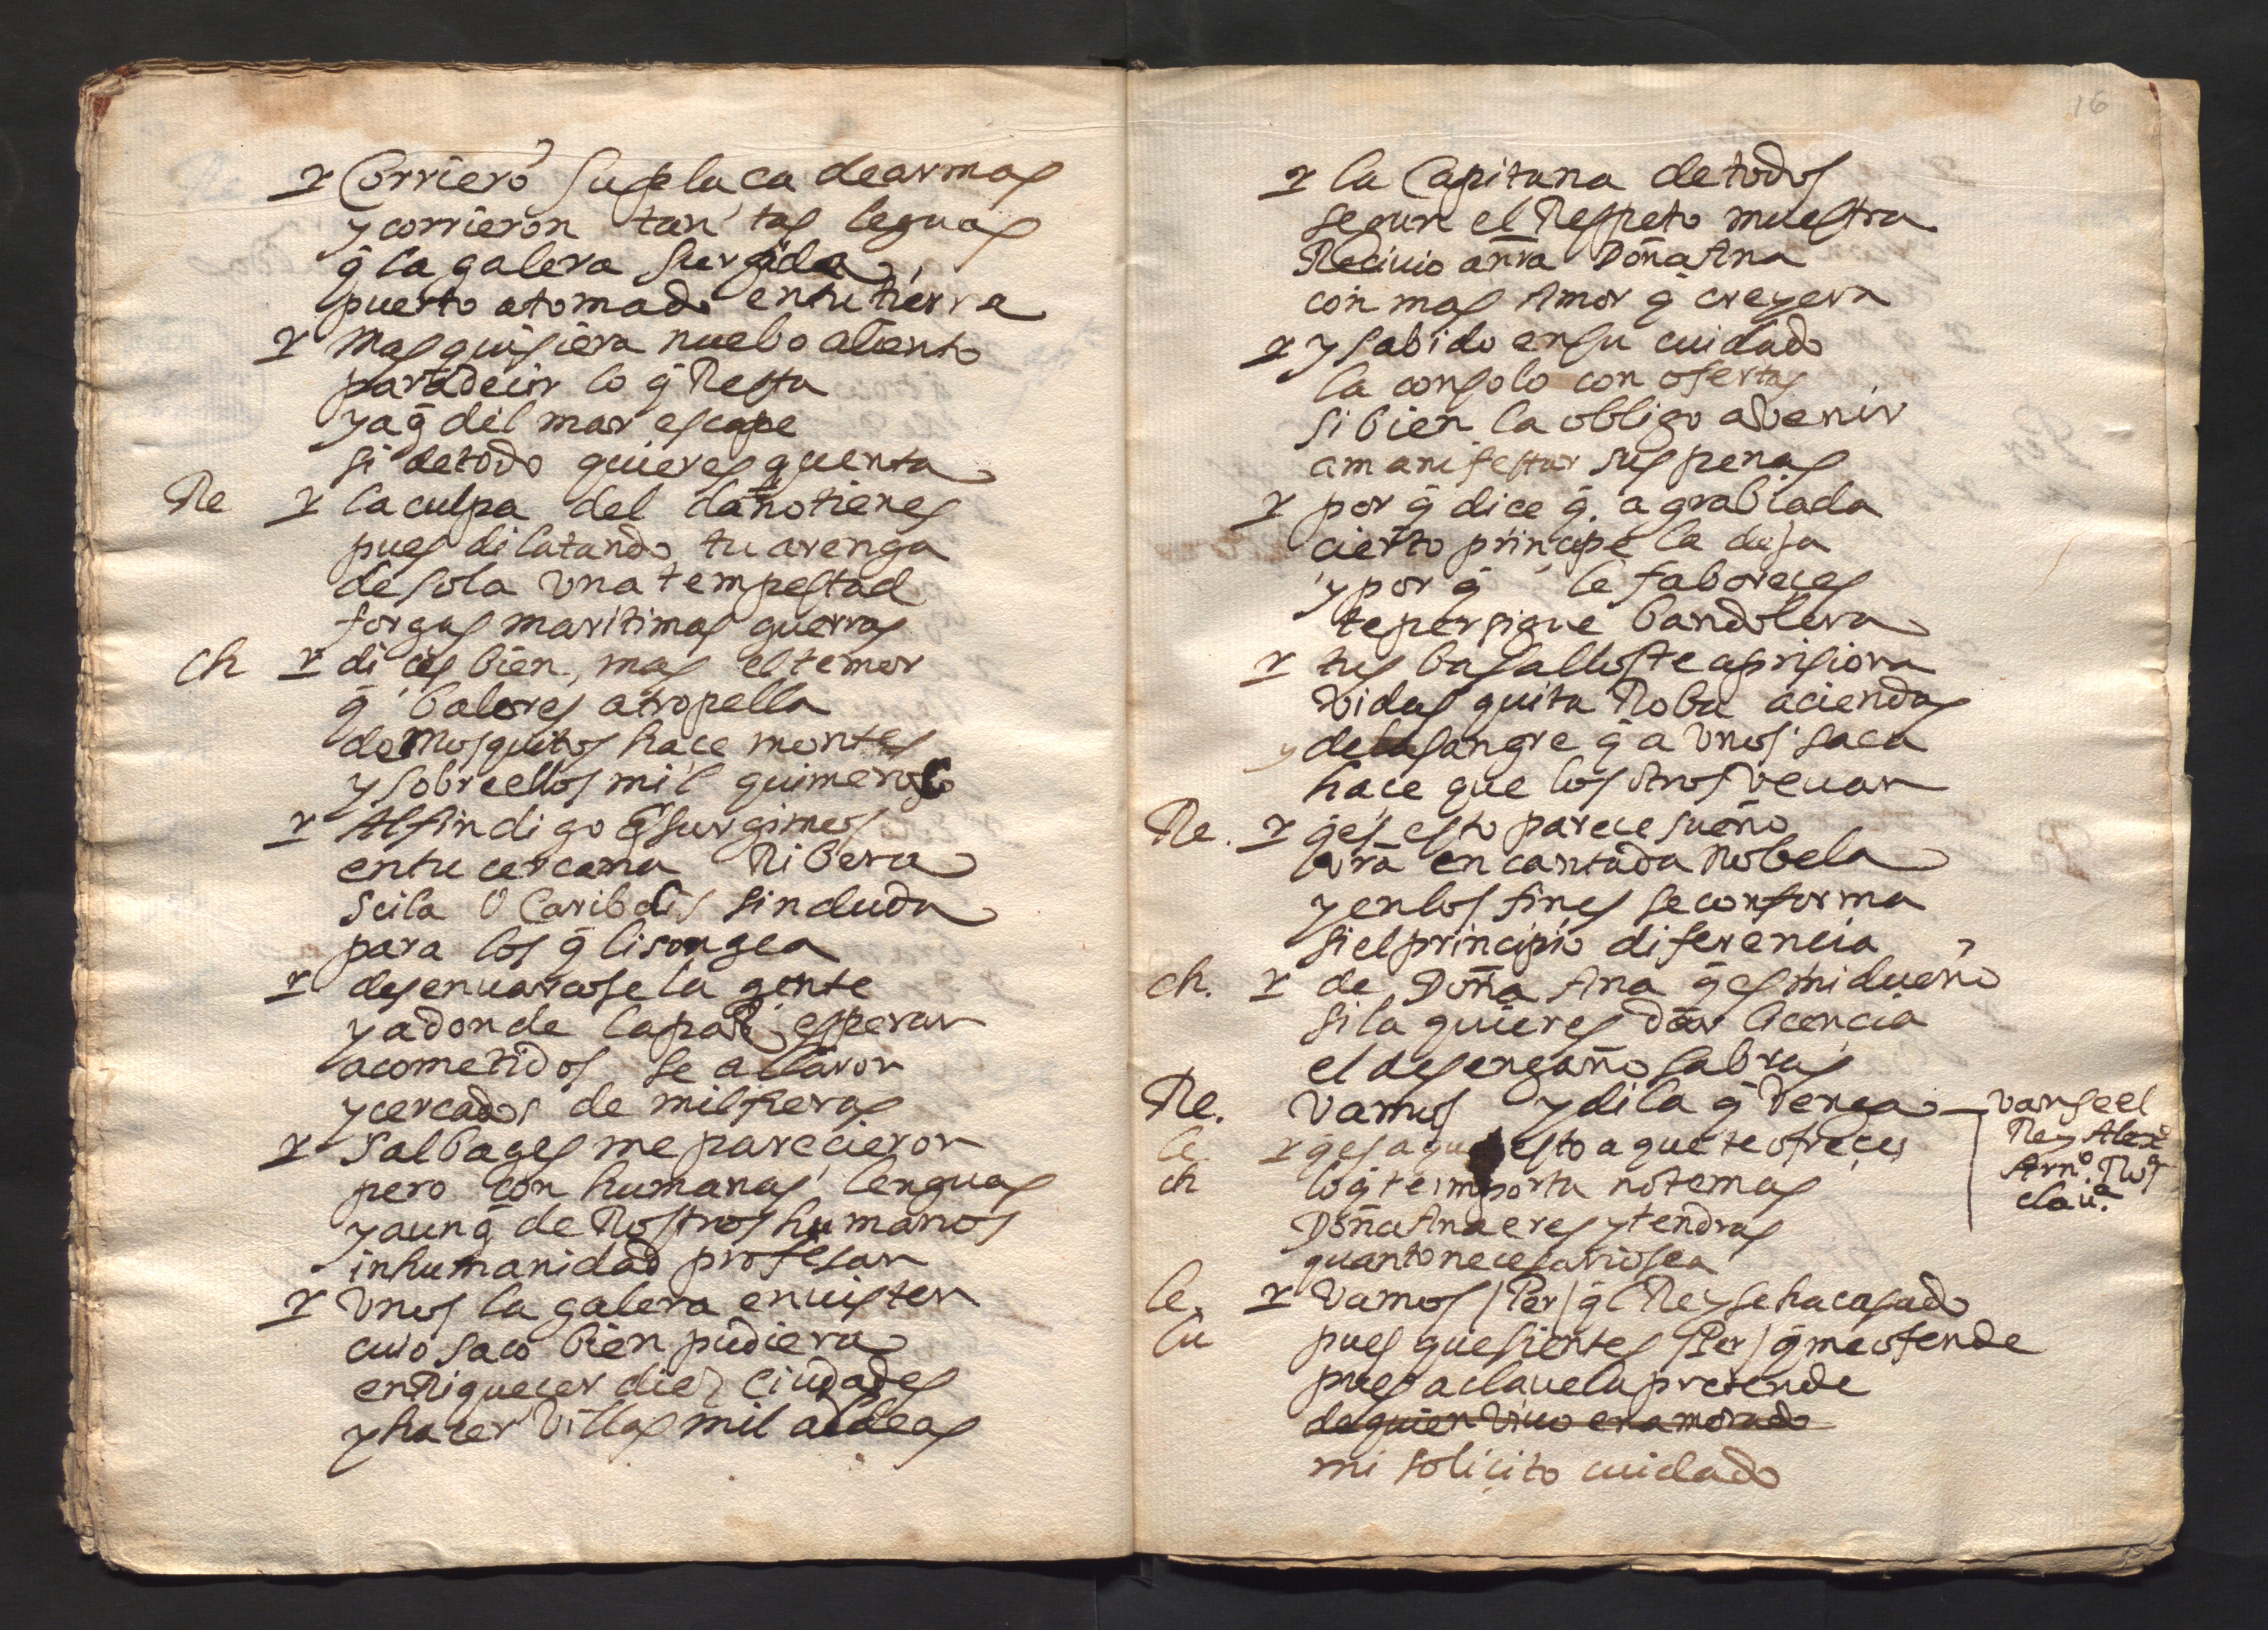 Corriero su plaça de armas
y corrieron tantas leguas
q̄ la galera surgida
puerto a tomado en tu tierra
mas quisiera nuebo aliento
para decir lo q̄ Resta
ya q̄ del mar escape
si de todo quieres quenta
Re la culpa del daño tienes
pues dilatando tu arenga
de sola vna tempestad
forgas maritimas guerras
ch dices bien, mas el temor
q̄ balores atropella
de Mosquitos hace montes
y sobre ellos mil quimeras
Al fin digo q̄ surgimos
en tu cercana Ribera
Scila o Caribdis sin duda
para los q̄ lisongea
desenuarcose la gente
y a donde la paz esperan
acometidos se allaron
y cercados de mil fieras
Salbages me parecieron
pero con humanas lenguas
y aunq̄ de Rostros humanos
inhumanidad profesan
vnos la galera enuisten
cuio saco bien pudiera
enRiquecer diez ciudades
y hacer villas mil aldeas
16
la Capitana de todos
segun el Respeto muestra
Reciuio a nr̄a Doña Ana
con mas Amor q̄ creyera
y sabido en su cuidado
la consolo con ofertas
si bien la obligo a benir
a manifestar sus penas
por q̄ dice q̄ agrabiada
cierto principe la deja
y por q̄ le faboreces
te persigue bandolera
tus basallos te aprisiona
vidas quita Roba aciendas
y de la sangre q̄ a vnos saca
hace que los otros veuan
Re. q̄ es esto parece sueño
o r̄a encantada nobela
y en los fines se conforma
si el principio diferencia
ch. de Doña Ana q̄ es mi dueño
si la quieres dar licencia
el desengaño sabras
Re. vamos y dila q̄ venga vanse el
Rey Alexo
Arno. Ror
claua.
le. q̄ es aquesto a que te ofreces
ch lo q̄ te importa no temas
Doña Ana eres y tendras
quanto necesario sea
le. Vamos /Per/ q̄l Rey se ha casado
lu pues que sientes /Per/ q̄ me ofende
pues a clauela pretende
de quien viuo enamorado
mi solicito cuidado